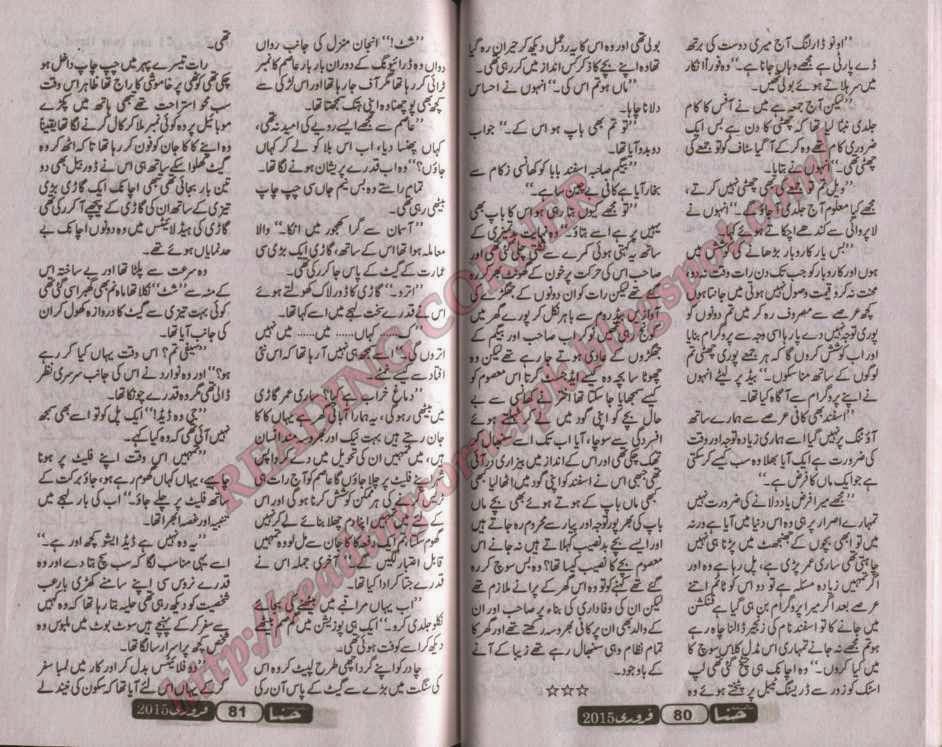 ”اونو ڈارلنگ آج میری دوست کی برتھ
ڈے پارٹی ہے مجھے وہاں جانا ہے۔“ وہ فوراً انکار
سر ہلاتے ہوئے بولی تھیں۔
”لیکن آج جمعہ ہے میں نے آفس کا کام
جلدی نمٹا لیا تھا کہ چھٹی کا دن ہے بس ایک
ضروری کام تھے وہ کر کے آ گیا سٹاف کو تو جمعے کی
چھٹی تھی۔“ انہوں نے بتایا۔
”ویل تم تو جمعے کی بھی چھٹی نہیں کرتے،
مجھے کیا معلوم آج جلدی آ جاؤ گے۔“ انہوں نے
لا پروائی سے کندھے اچکاتے ہوئے کہا۔
”بس یار کاروبار بڑھانے کی کوشش میں
ہوں اور کاروبار کو جب تک دن رات وقت نہ دو،
محنت نہ کرو قیمت وصول نہیں ہوتی میں جانتا ہوں
کچھ عرصے سے مصروف رہ کر میں تم دونوں کو
پوری توجہ نہیں دے پا رہا اسی وجہ سے پروگرام بنایا
اور اب کوشش کروں گا کہ ہر جمعے پوری چھٹی تم
لوگوں کے ساتھ منا سکوں۔“ بیڈ پر لیٹے انہوں
نے اپنے پروگرام سے آگاہ کیا تھا۔
”اسفند بھی کافی عرصے سے ہمارے ساتھ
آؤٹنگ پر نہیں گیا اسے ہماری زیادہ توجہ اور وقت
کی ضرورت ہے ایک آیا بھلا وہ سب کیسے کر سکتی
ہے جو ایک ماں کا فرض ہے۔“
”مجھے میرا فرض یاد دلانے کی ضرورت نہیں
تمہارے اصرار پر ہی وہ اس دنیا میں آیا ہے ورنہ
میں تو ابھی بچوں کے جھنجھٹ میں پڑنا ہی نہیں
چاہتی تھی ساری عمر پڑی ہے، پل رہا ہے وہ اور
اگر تمہیں زیادہ مسئلہ ہے تو دو اس کو ٹائم اتنے
عرصے بعد اگر میرا پروگرام بن ہی گیا ہے فنکشن
میں جانے کا تو اسفند نام کی زنجیر ڈالنا چاہ رہے
ہو تم مجھے نہ جانے تمہاری اس مڈل کلاس سوچ کا
میں کیا کروں۔“ وہ اچانک ہی چیخ گئی تھی لپ
اسٹک کو زور سے ڈریسنگ ٹیبل پر پٹختے ہوئے وہ
بولی تھی اور وہ اس کا یہ ردعمل دیکھ کر حیران رہ گیا
تھا وہ اپنے بچے کا ذکر کس انداز میں کر رہی تھی۔
”ماں ہو تم اس کی۔“ انہوں نے احساس
دلانا چاہا۔
”تو تم بھی باپ ہو اس کے۔“ جواب
دو بدو آیا تھا۔
”بیگم صاحبہ! اسفند بابا کو کھانسی زکام سے
بخار آیا ہے کافی بے چین سا ہے۔“
”تو مجھے کیوں بتا رہی ہو اس کا باپ بھی
یہیں پر ہے اسے بتاؤ۔“ وہ نہایت بدتمیزی کے
ساتھ یہ کہتی ہوئی کمرے سے نکلتی چلی گئی تھی اور
صاحب اس کی حرکت پر خون کے گھونٹ بھر کر رہ
گئے تھے لیکن رات کو ان دونوں کے جھگڑے کی
آوازیں بیڈ روم سے باہر نکل کر پورے گھر میں
گونج رہی تھیں نوکر اب صاحب اور بیگم کے
جھگڑوں کے عادی ہوتے جا رہے تھے لیکن وہ
چھوٹا سا بچہ وہ کیسے ایڈجسٹ کرتا اس معصوم کو
کیسے سمجھایا جا سکتا تھا اختر نے کھانسی سے بے
حال بچے کو اپنی گود میں لے کر تھپکتے ہوئے
افسردگی سے سوچا، آیا اب تک اسے سنبھالتے
تھک چکی تھی اور اس کے انداز میں بیزاری در آئی
تھی تبھی اس نے اسفند کو اپنی گود میں اٹھا لیا تھا
کبھی ماں باپ کے ہوتے ہوئے بھی بچے ماں
باپ کی بھرپور توجہ اور پیار سے محروم رہ جاتے ہیں
اور ایسے بچے بد نصیب کہلاتے ہیں نہ جانے اس
معصوم بچے کا نصیب کیسا تھا؟ وہ نہ جانے کیا سوچ
گئے تھے کہنے کو تو وہ اس گھر کے پرانے ملازم تھے
لیکن ان کی وفاداری کی بناء پر صاحب اور ان
کے والد بھی ان پر کافی بھروسہ رکھتے تھے اور گھر کا
تمام نظام وہی سنبھال رہے تھے زیبا کے آنے
کے باوجود۔
☆☆☆
حنا 80 فروری 2015
”شٹ!“ انجان منزل کی جانب رواں
دواں وہ ڈرائیونگ کے دوران بار بار عاصم کا نمبر
ٹرائی کر رہا تھا مگر آف جا رہا تھا اور اس لڑکی سے
کچھ بھی پوچھنا وہ اپنی ہتک سمجھتا تھا۔
”عاصم سے مجھے ایسے رویے کی امید نہ تھی،
کہاں پھنسا دیا، اب اس بلا کو لے کر کہاں
جاؤں؟“ وہ اب قدرے پریشان ہونے لگا تھا۔
تمام راستے وہ بس نیم جاں سی چپ چاپ
بیٹھی رہی تھی۔
”آسمان سے گرا کھجور میں اٹکا۔“ والا
معاملہ ہوا تھا اس کے ساتھ، گاڑی ایک بڑی سی
عمارت کے گیٹ کے پاس جا کر رکی تھی۔
”اترو۔“ گاڑی کا ڈور لاک کھولتے ہوئے
اس نے قدرے سخت لہجے میں اسے کہا تھا۔
”ک..... کہاں..... میں..... میں نہیں
اتروں گی۔“ اسے سمجھ نہیں آ رہا تھا کہ اس نئی
افتاد سے کیسے نمٹے
”دماغ خراب ہے کیا؟ ساری عمر گاڑی
میں بیٹھی رہو گی، یہ ہمارا آبائی گھر ہے یہاں کاکا
جان رہتے ہیں بہت نیک اور بھروسہ مند انسان
ہیں، میں تمہیں ان کی تحویل میں دے کر واپس
اپنے فلیٹ پر چلا جاؤں گا عاصم کو آج رات ہی
ڈھونڈنے کی ہر ممکن کوشش کرنا ہو گی اور اس
کے لئے میں تمہیں اپنا دم چھلا بنائے لے کر نہیں
گھوم سکتا، تم ایک دفعہ کاکا جان سے مل لو وہ تمہیں
قابل اعتبار لگیں گے۔“ آخری جملہ اس نے
قدرے جتا کر ادا کیا تھا۔
”اب یہاں مراقبے میں بیٹھنے کی بجائے
نکلو جلدی کرو۔“ ایک ہی پوزیشن میں گم صم بیٹھے
دیکھ کر اسے کوفت ہوئی تھی۔
چادر کو اپنے گرد اچھی طرح لپیٹ کر وہ اس
کی سنگت میں بڑے سے گیٹ کے پاس آن رکی
تھی۔
رات تیسرے پہر میں چپ چاپ داخل ہو
چکی تھی کوٹھی پر خاموشی کا راج تھا ظاہر اس وقت
سب محو استراحت تھے تبھی ہاتھ میں پکڑے
موبائیل پر وہ کوئی نمبر ملا کر کال کرنے لگا تھا یقیناً
وہ اپنے کاکا جان کو فون کر رہا تھا تاکہ اٹھ کر وہ
گیٹ کھلوا سکے ساتھ ہی اس نے ڈور بیل بھی دو
تین بار بجائی تھی تبھی اچانک ایک گاڑی بڑی
تیزی کے ساتھ ان کی گاڑی کے پیچھے آ کر رکی تھی
گاڑی کی ہیڈ لائیٹس میں وہ دونوں اچانک بے
حد نمایاں ہوئے تھے۔
وہ سرعت سے پلٹا تھا اور بے ساختہ اس
کے منہ سے ”شٹ“ نکلا تھا ماہ نم بھی گھبرا سی گئی تھی
کوئی بہت تیزی سے گیٹ کا دروازہ کھول کر ان
کی جانب آیا تھا۔
”سیفی تم؟ اس وقت یہاں کیا کر رہے
ہو؟“ اور وہ نووارد نے اس کی جانب سرسری نظر
ڈالی تھی مگر وہ قدرے چونکا تھا۔
”جی وہ ڈیڈ!“ ایک پل کو تو اسے بھی سمجھ
نہیں آئی تھی کہ وہ کیا کہے۔
”تمہیں اس وقت اپنے فلیٹ پر ہونا
چاہیے، یہاں کہاں گھوم رہے ہو، جاؤ برکت کے
ساتھ فلیٹ پر چلے جاؤ۔“ اب کی بار لہجے میں
تنبیہ اور غصہ ابھرا تھا۔
”یہ وہ نہیں ہے ڈیڈ ایشو کچھ اور ہے۔“
اسے یہی مناسب لگا کہ سب سچ بتا دے اور وہ
قدرے نروس سی اپنے سامنے کھڑی بارعب
شخصیت کو دیکھ رہی تھی حلیہ بتا رہا تھا کہ وہ کہیں
سے سفر کر کے پہنچے ہیں سوٹ بوٹ میں ملبوس وہ
شخص کچھ پراسرار سا لگا تھا۔
”دو فلائیٹس بدل کر اور کار میں لمبا سفر
کر کے یہاں اس لئے آیا تھا کہ سکون کی نیند لے
حنا 81 فروری 2015
READING CORNER
http://readingcornerpk.blogspot.com/